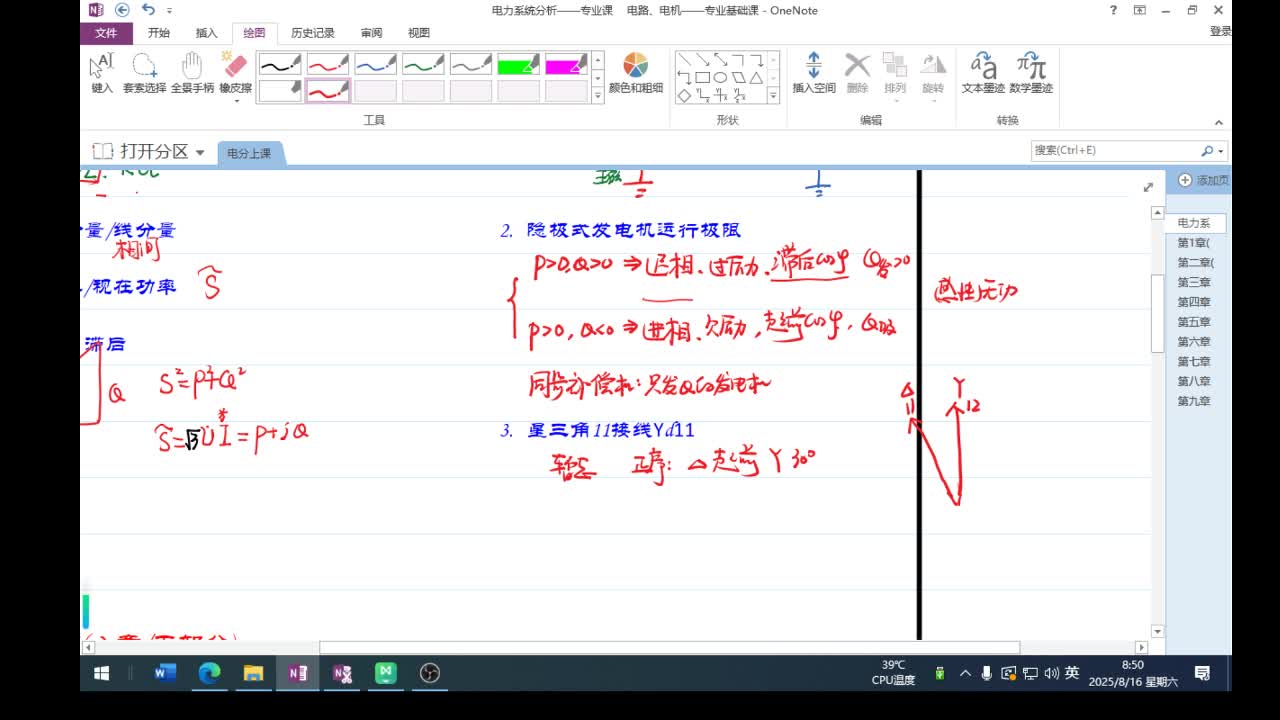 电力系统分析——专业课 电路、电机——专业基础课 - OneNote
登录
文件 开始 插入 绘图 历史记录 审阅 视图
键入 套索选择 全景手柄 橡皮擦
颜色和粗细
插入空间 删除 排列 旋转
文本墨迹 数学墨迹
工具 形状 编辑 转换
打开分区 电分上课
搜索(Ctrl+E)
添加页
电力系
第1章(
第二章(
第三章
第四章
第五章
第六章
第七章
第八章
第九章
量/线分量
相间
/视在功率 S̃
滞后
Q
S²=P²+Q²
S̃=√3U̇I*=P+jQ
2. 隐极式发电机运行极限
P>0,Q>0 ⇒迟相、过励、滞后cosφ Q发>0
感性无功
P>0,Q<0 ⇒进相、欠励,超前cosφ,Q吸
同步补偿机:只发Q的发电机
3. 星三角11接线Yd11
正序:△超前Y 30°
△ 11
Y 12
39℃
CPU温度
英
8:50
2025/8/16 星期六